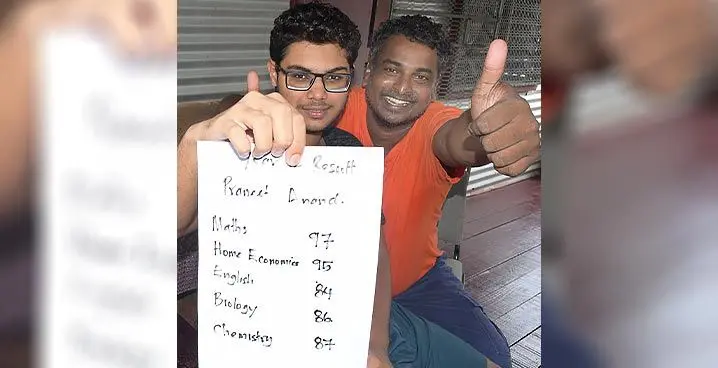 Year Result
Praneet Anand.
Maths 97
Home Economics 95
English 84
Biology 86
Chemistry 87